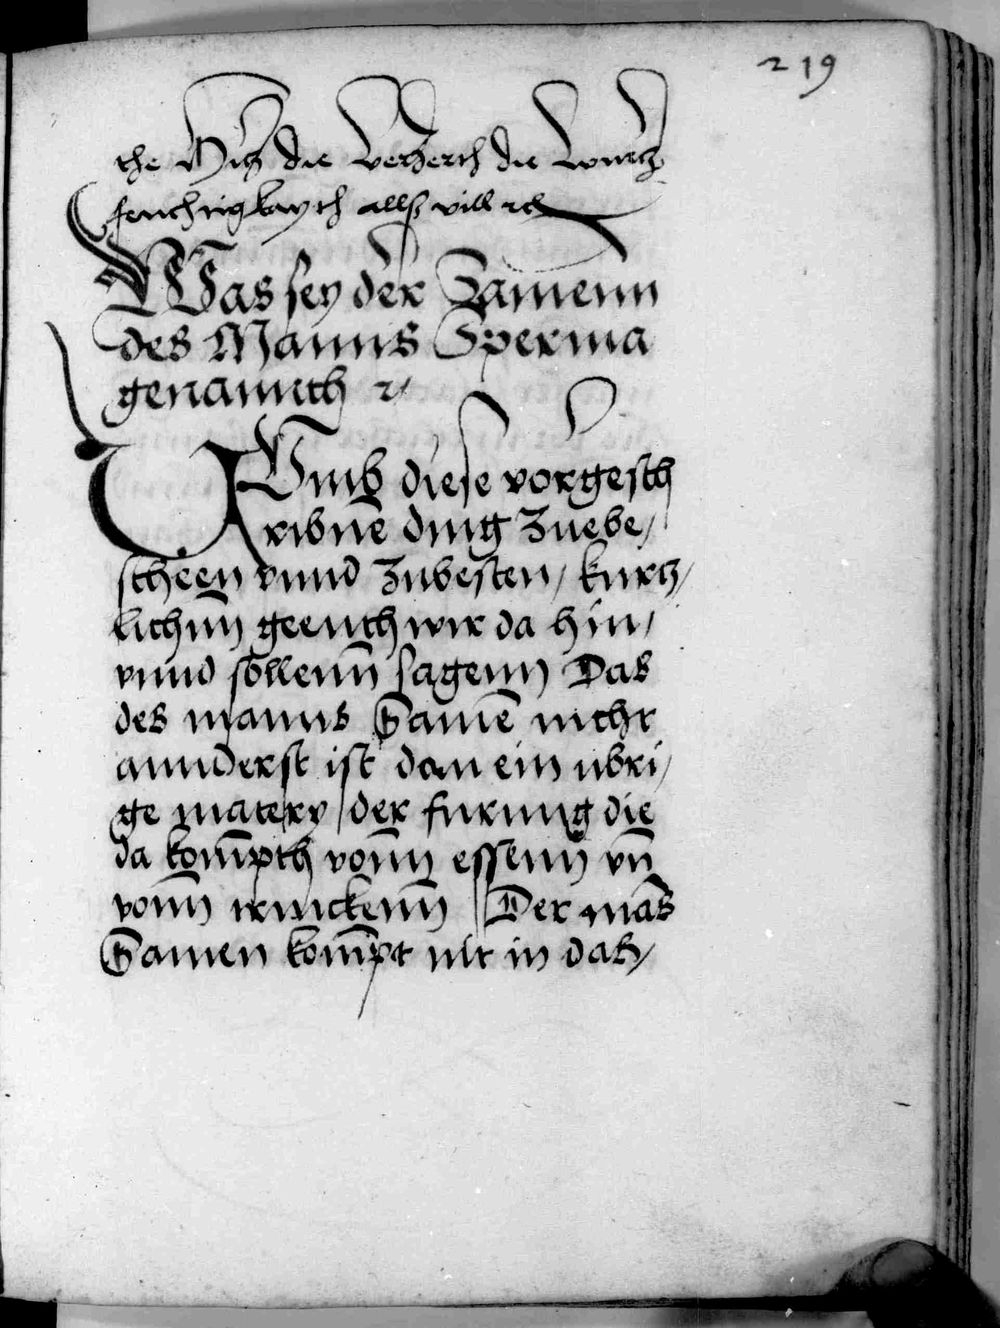 219
che Hitz die verzerth die
feuchtigkayth allß vill ⁊c
Was sey der Zamenn
des Manns Sperma
genannth ⁊c
Vmb diese vorgesch
ribne ding zuebe/
scheen vnnd zubesten/ kurtz/
lichnn geenth wir da hin/
vnnd söllenn sagenn Das
des manns Samē nicht
annderst ist dan ein ubri/
ge matery der furung die
da kom̄pth vonn essenn vn̄
vonn trinckenn Der mās
Samen kom̄pt nit in das/